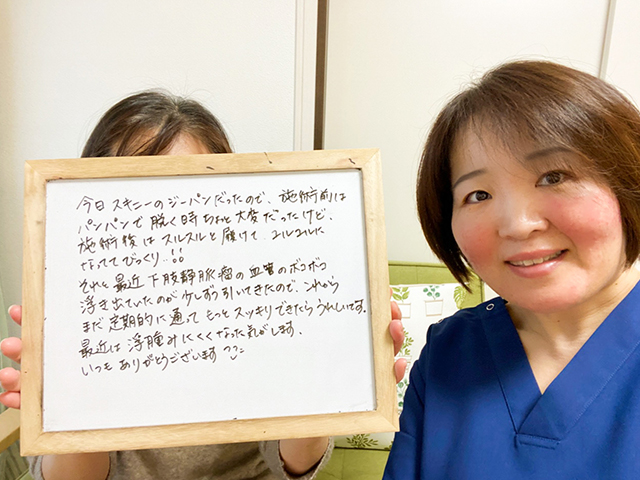 今日 スキニーの ジーパン だったので、施術前は
パンパンで 脱く時 ちょっと 大変 だったけど、
施術後は スルスルと 履けて、ユルユルに
なってて びっくり..!!
それと 最近 下肢静脈瘤の 血管の ボコボコ
浮き出ていたのが 少しずつ 引いてきたので、これから
まだ 定期的に 通って もっと スッキリ できたら うれしいです。
最近は 浮腫みにくくなった 気がします。
いつも ありがとうございます